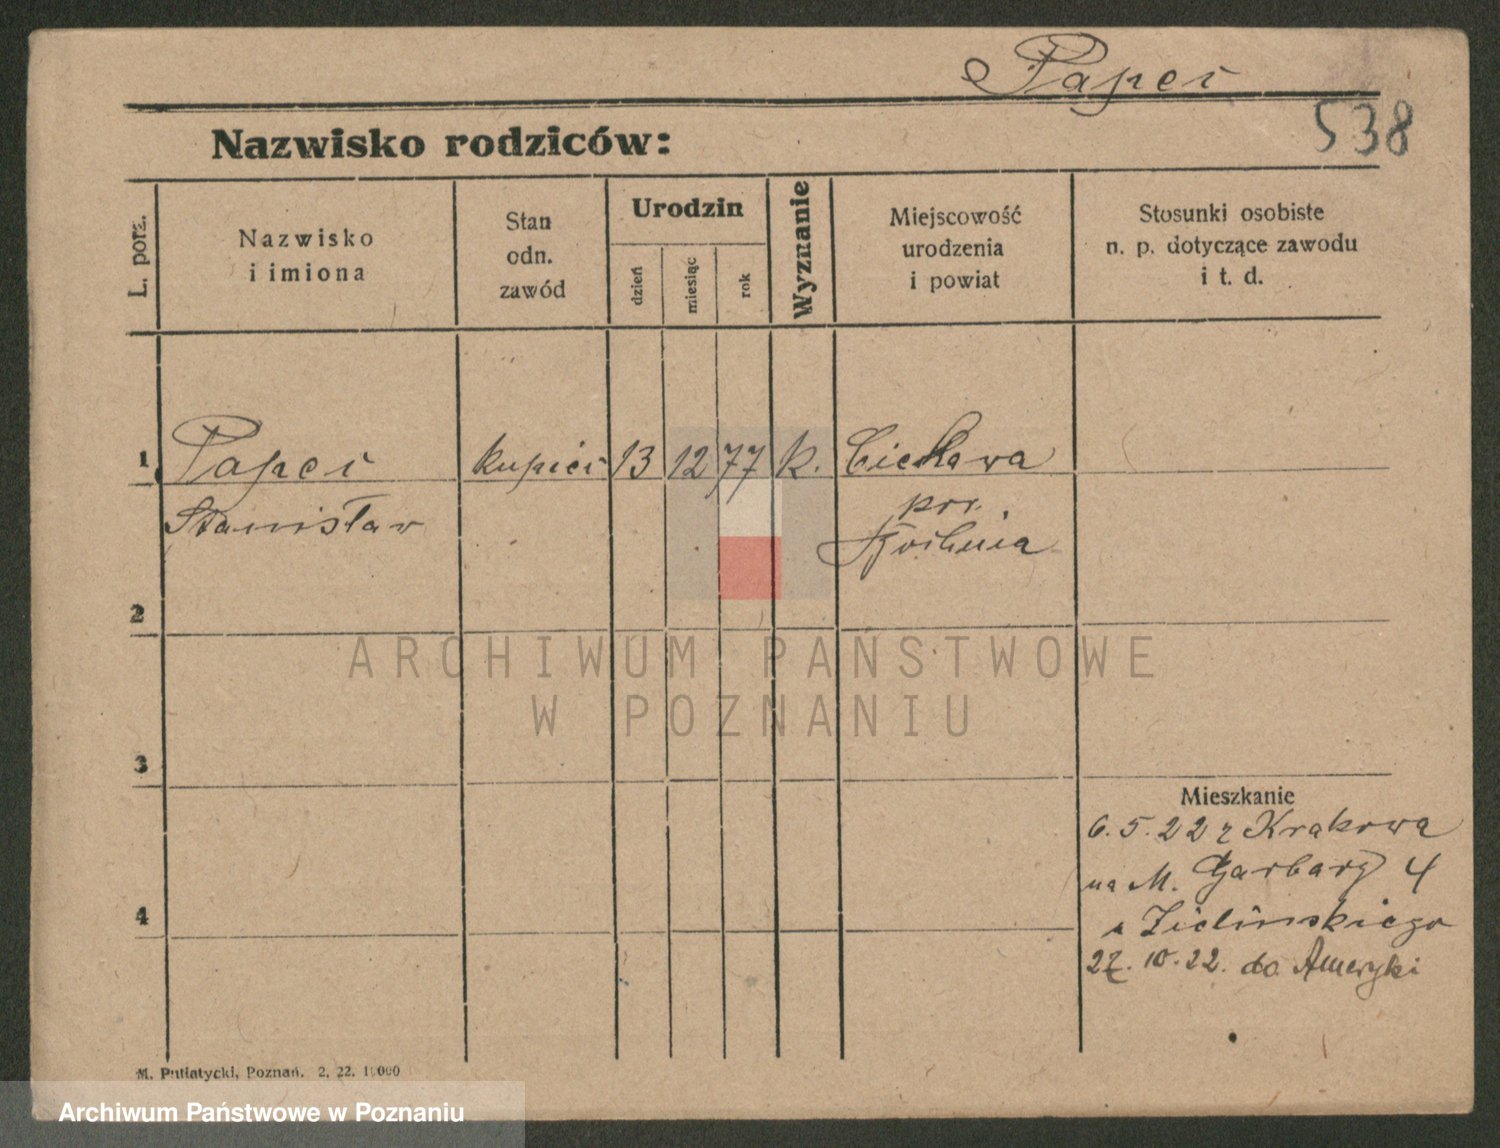 Papei
538
Nazwisko rodziców:
L. porz.
Nazwisko
i imiona
Stan
odn.
zawód
Urodzin
dzień
miesiąc
rok
Wyznanie
Miejscowość
urodzenia
i powiat
Stosunki osobiste
n. p. dotyczące zawodu
i t. d.
1 Papei kupiec 13 12 77 k.
Stanisław
pow.
2
3
4
Mieszkanie
6.5.22 z Krakowa
na M. Garbary 4
u Zielińskiego
27.10.22. do Ameryki
M. Putiatycki, Poznań. 2. 22. 10000
ARCHIWUM PAŃSTWOWE
W POZNANIU
Archiwum Państwowe w Poznaniu